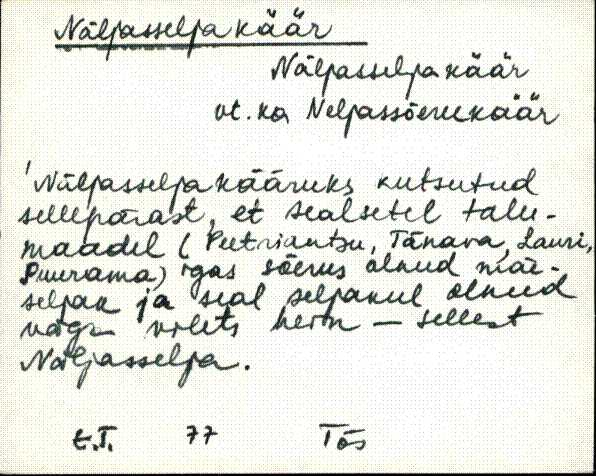 Näljasseljakäär
Näljasseljakäär
vt. ka Neljassõerukäär
Näljasseljakääruks kutsutud
sellepärast, et sealsetel talu-
maadel ( Peetriantsu, Tänava, Lauri,
Puurama) igas sõerus olnud mäe-
seljak ja seal seljakul olnud
väga vilets hein — sellest
Näljasselja.
E.T. 77 Tõs